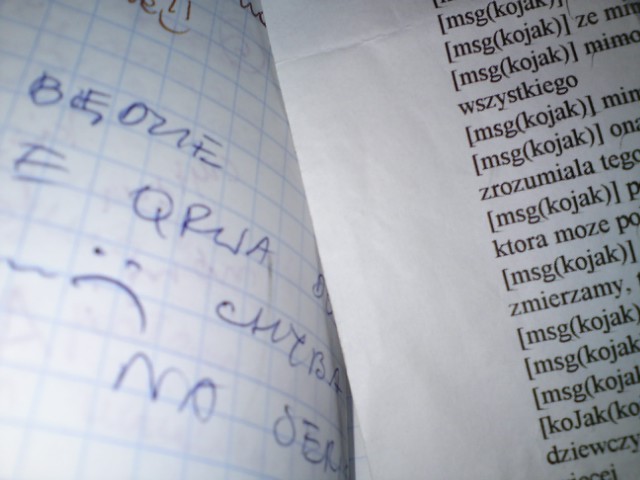 BĘDZIE
E QRWA
CHYBA
NA SER
[msg(kojak)]
[msg(kojak)] ze min
[msg(kojak)] mimo
wszystkiego
[msg(kojak)] mim
[msg(kojak)] ona
zrozumiala tego
[msg(kojak)] p
ktora moze po
[msg(kojak)]
zmierzamy,
[msg(kojak)
[msg(kojak
[msg(kojak
[koJak(ko
dziewczy